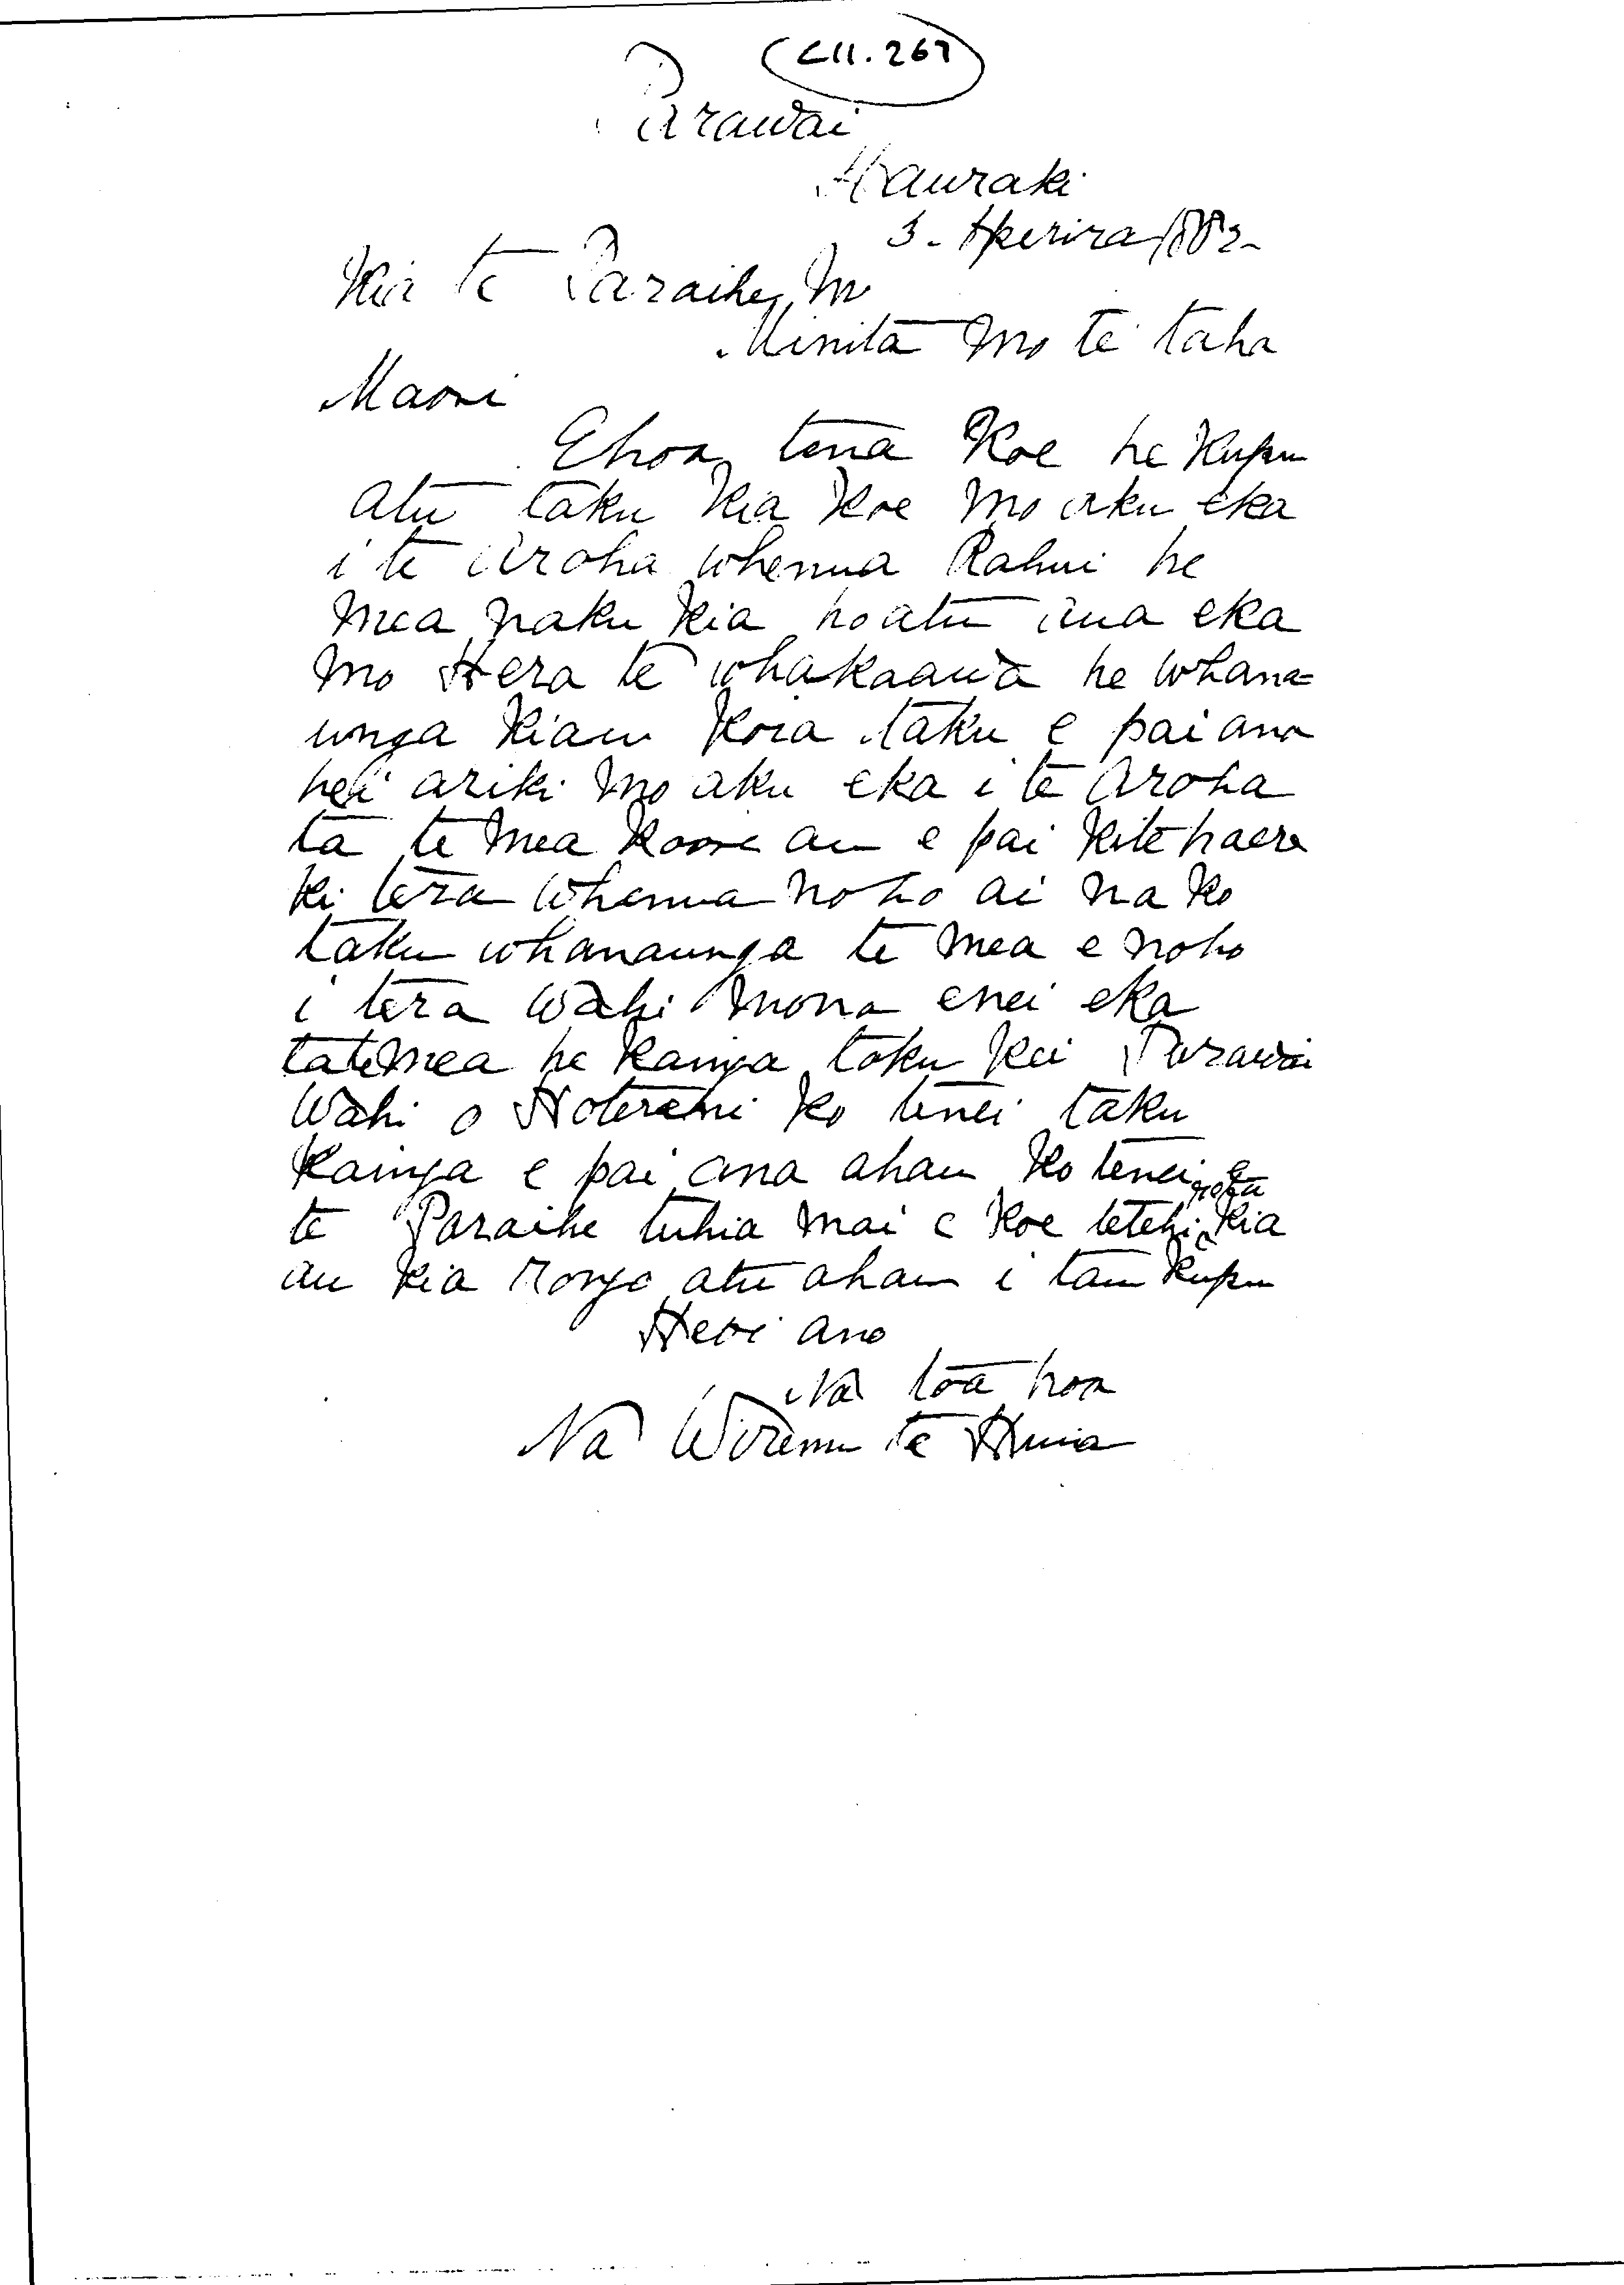 C11.267
Parawai
Hauraki
3 - Aperira 1882 -
Kia te Paraihe, M
Minita mo te taha
Maori
Ehoa, tena Koe he Kupu
atu taku Kia Koe mo aku eka
i te Aroha whenua Rahui he
mea naku Kia hoatu aua eka
mo Hera te whakaawa he whana=
unga Kiau Koia taku e pai ana
hei ariki mo aku eka i te Aroha
ta te mea Koore au e pai Kite haere
Ki tera whenua noho ai na Ko
taku whanaunga te mea e noho
i tera wahi mona enei eka
tatemea he Kainga toku Kei Parawai
wahi o Hotereni Ko tenei taku
Kainga e pai ana ahau Ko tenei e
te Paraihe tuhia mai e Koe tetehi reta Kia
au Kia rongo atu ahau i tau Kupu
Heoi ano
Na toa hoa
Na Wiremu te Huia